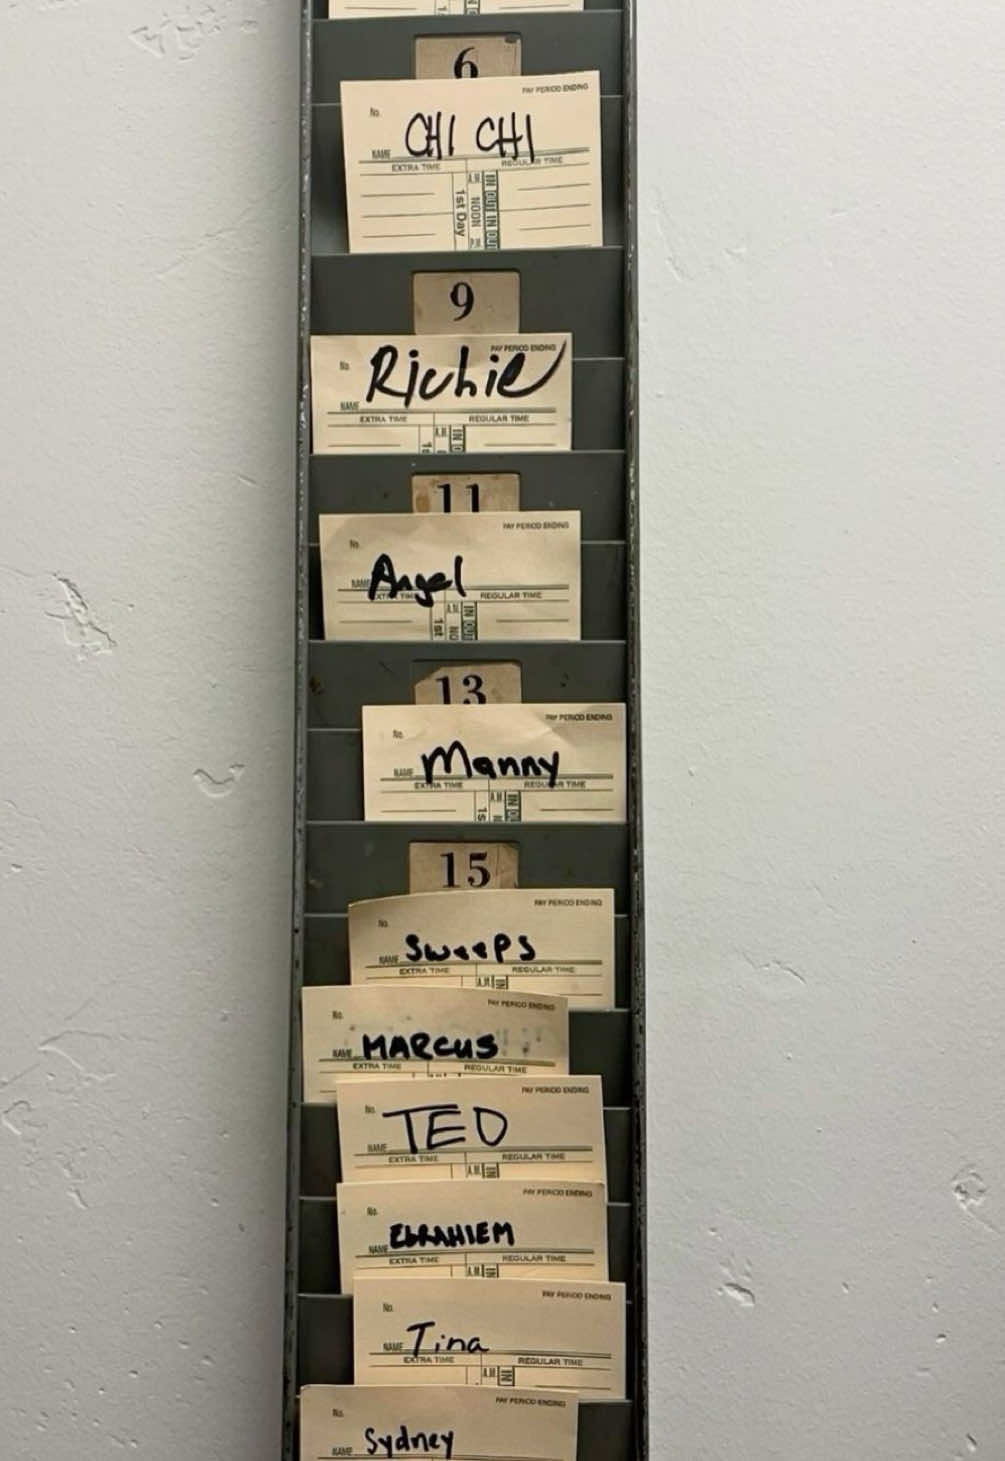 6
PAY PERIOD ENDING
No.
CHI CHI
NAME
EXTRA TIME REGULAR TIME
1st Day
A.M. NOON P.M.
IN OUT IN OUT
9
PAY PERIOD ENDING
No.
Richie
NAME
EXTRA TIME REGULAR TIME
A.M.
IN
11
PAY PERIOD ENDING
No.
NAME Angel
EXTRA TIME REGULAR TIME
1st
A.M.
IN OUT
13
PAY PERIOD ENDING
No.
NAME Manny
EXTRA TIME REGULAR TIME
1s
A.M.
IN
15
PAY PERIOD ENDING
No.
NAME Sweeps
EXTRA TIME REGULAR TIME
A.M. IN
PAY PERIOD ENDING
No.
NAME MARCUS
EXTRA TIME REGULAR TIME
PAY PERIOD ENDING
No.
TED
NAME
EXTRA TIME REGULAR TIME
A.M. IN
PAY PERIOD ENDING
No.
NAME EbRAHIEM
EXTRA TIME REGULAR TIME
A.M. IN
PAY PERIOD ENDING
No.
NAME Tina
EXTRA TIME REGULAR TIME
A.M. IN
PAY PERIOD ENDING
No.
NAME Sydney